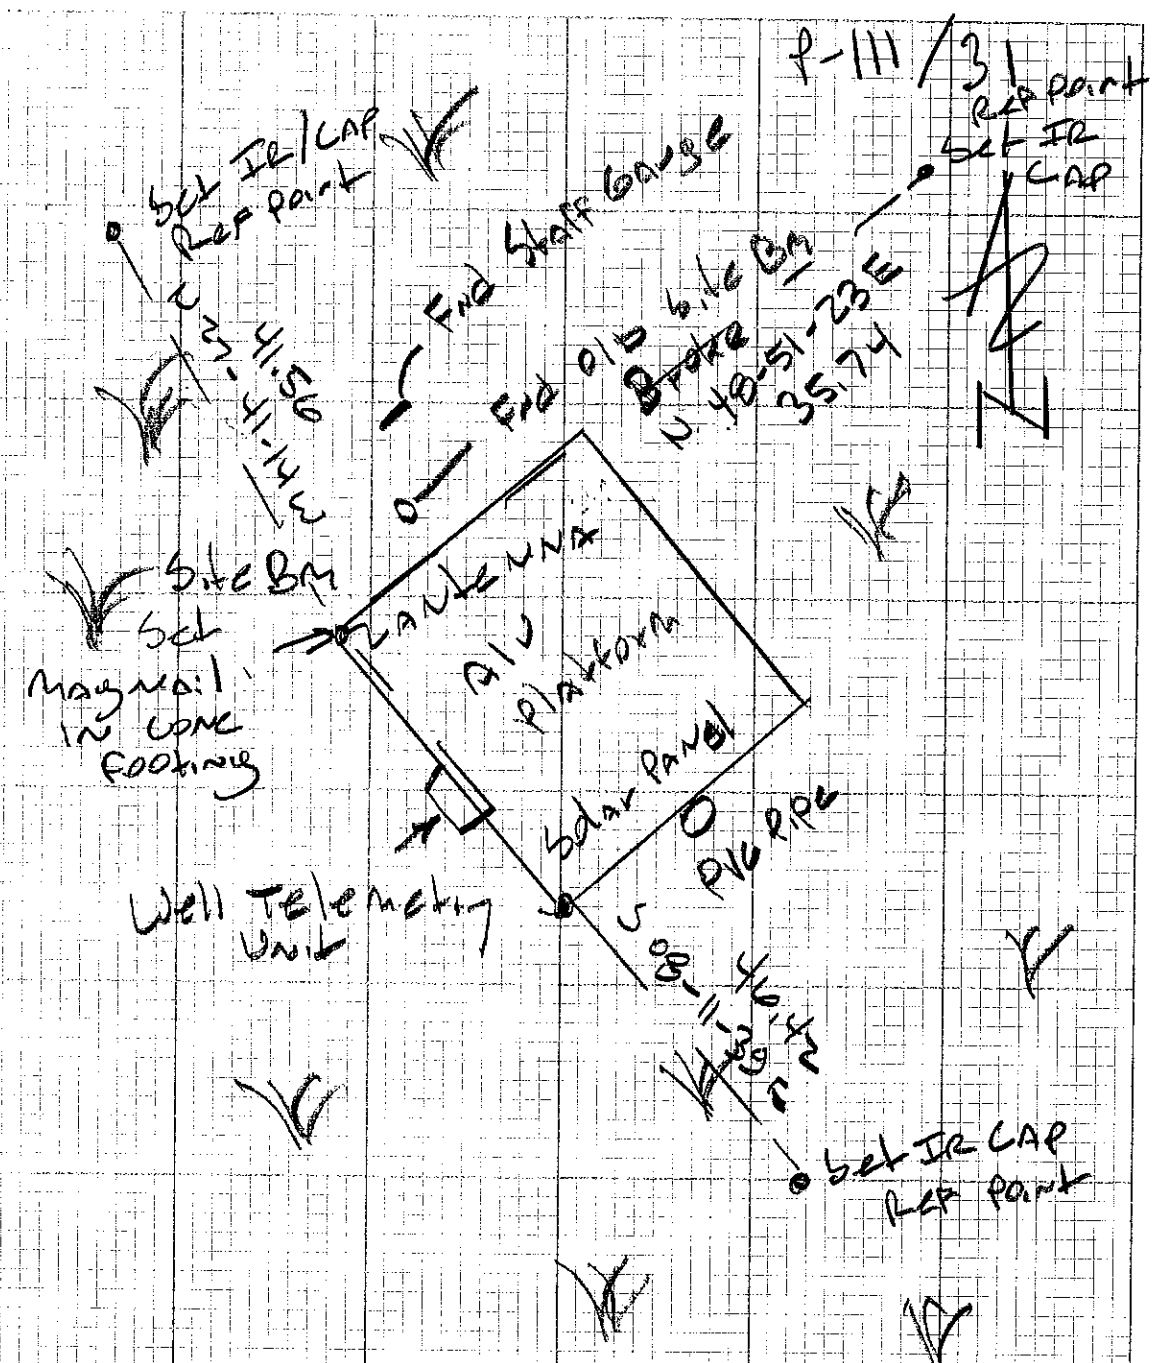 P-111/31
Ref Point
Set IR
CAP
Set IR/CAP
Ref Point
Fnd Staff Gauge
Fnd Old Site BM
Broke
N 48-51-23 E
35.74
N
41.56
N 3-41-14 W
Site BM
Set
MagNail
in conc
footing
Antenna
Alu
Platform
Solar Panel
PVC Pipe
Well Telemetry
Unit
46.42
Set IR CAP
Ref Point